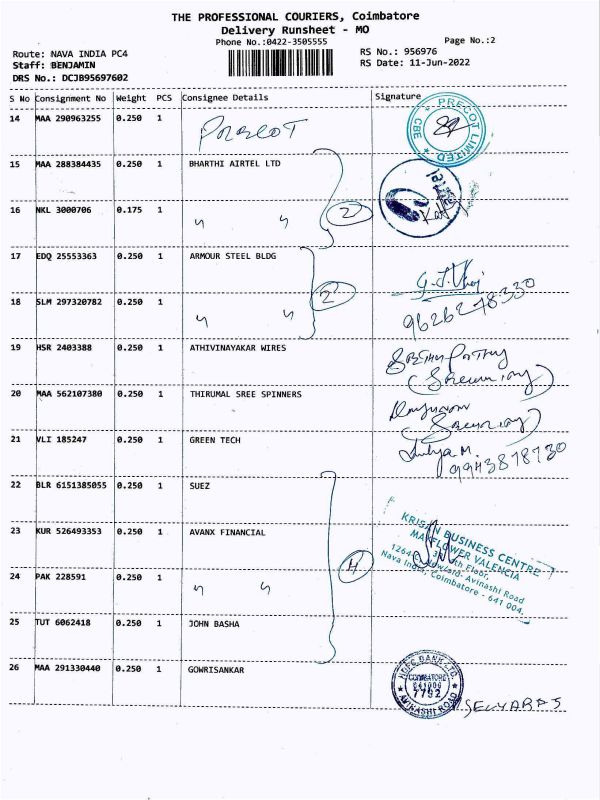 THE PROFESSIONAL COURIERS, Coimbatore
Delivery Runsheet - MO
Phone No.:0422-3505555
Page No.:2
Route: NAVA INDIA PC4
RS No.: 956976
Staff: BENJAMIN
RS Date: 11-Jun-2022
DRS No.: DCJB95697602
S No Consignment No Weight PCS Consignee Details Signature
14 MAA 290963255 0.250 1 PRECOT
PRECOT LIMITED CBE
15 MAA 288384435 0.250 1 BHARTHI AIRTEL LTD
airtel
16 NKL 3000706 0.175 1 " "
2
17 EDQ 25553363 0.250 1 ARMOUR STEEL BLDG
18 SLM 297320782 0.250 1 " "
2
9626278330
19 HSR 2403388 0.250 1 ATHIVINAYAKAR WIRES
20 MAA 562107380 0.250 1 THIRUMAL SREE SPINNERS
21 VLI 185247 0.250 1 GREEN TECH
9943878730
22 BLR 6151385055 0.250 1 SUEZ
23 KUR 526493353 0.250 1 AVANX FINANCIAL
KRISAN BUSINESS CENTRE
MAYFLOWER VALENCIA
Floor,
Avinashi Road
Nava India, Coimbatore - 641 004.
24 PAK 228591 0.250 1 " "
4
25 TUT 6062418 0.250 1 JOHN BASHA
26 MAA 291330440 0.250 1 GOWRISANKAR
HDFC BANK LTD.
COIMBATORE
641006
7792
AVINASHI ROAD